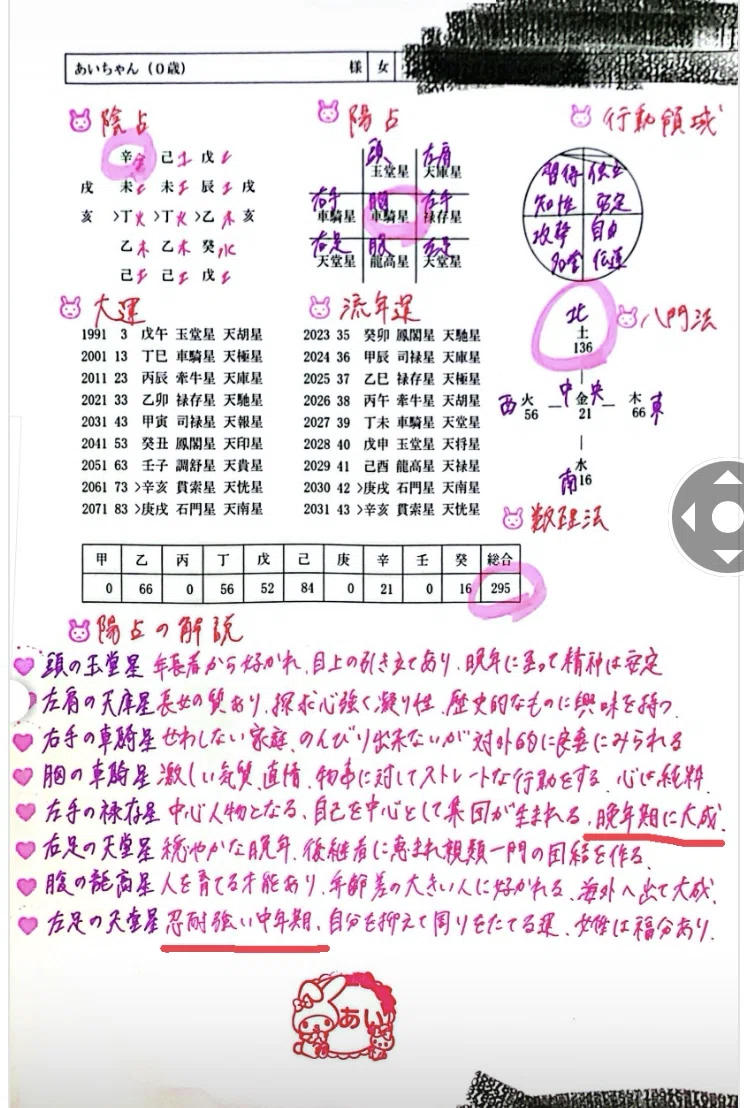 あいちゃん（0歳） 様 女
陰占
辛金 己土 戊土
戌 未土 未土 辰土 戌
亥 >丁火 >丁火 >乙木 亥
乙木 乙木 癸水
己土 己土 戊土
陽占
頭 左肩
玉堂星 天庫星
右手 胸 左手
車騎星 車騎星 禄存星
右足 腹 左足
天堂星 龍高星 天堂星
行動領域
習得
知性 安定
攻撃 自由
伝達
大運
1991 3 戊午 玉堂星 天胡星
2001 13 丁巳 車騎星 天極星
2011 23 丙辰 牽牛星 天庫星
2021 33 乙卯 禄存星 天馳星
2031 43 甲寅 司禄星 天報星
2041 53 癸丑 鳳閣星 天印星
2051 63 壬子 調舒星 天貴星
2061 73 >辛亥 貫索星 天恍星
2071 83 >庚戌 石門星 天南星
流年運
2023 35 癸卯 鳳閣星 天馳星
2024 36 甲辰 司禄星 天庫星
2025 37 乙巳 禄存星 天極星
2026 38 丙午 牽牛星 天胡星
2027 39 丁未 車騎星 天堂星
2028 40 戊申 玉堂星 天将星
2029 41 己酉 龍高星 天禄星
2030 42 >庚戌 石門星 天南星
2031 43 >辛亥 貫索星 天恍星
八門法
北
土
136
西 火 中央 金 木 東
56 21 66
水
南 16
数理法
甲 乙 丙 丁 戊 己 庚 辛 壬 癸 総合
0 66 0 56 52 84 0 21 0 16 295
陽占の解説
頭の玉堂星 年長者から好かれ、目上の引き立てあり、晩年に至って精神は安定
左肩の天庫星 長女の質あり、探求心強く凝り性、歴史的なものに興味を持つ、
右手の車騎星 せわしない家庭、のんびり出来ないが対外的に良妻にみられる
胸の車騎星 激しい気質、直情、物事に対してストレートな行動をする、心は純粋
左手の禄存星 中心人物となる、自己を中心として集団が生まれる、晩年期に大成
右足の天堂星 穏やかな晩年、後継者に恵まれ親類一門の団結を作る、
腹の龍高星 人を育てる才能あり、年齢差の大きい人に好かれる、海外へ出て大成、
左足の天堂星 忍耐強い中年期、自分を抑えて周りをたてる運、女性は福分あり、
あい